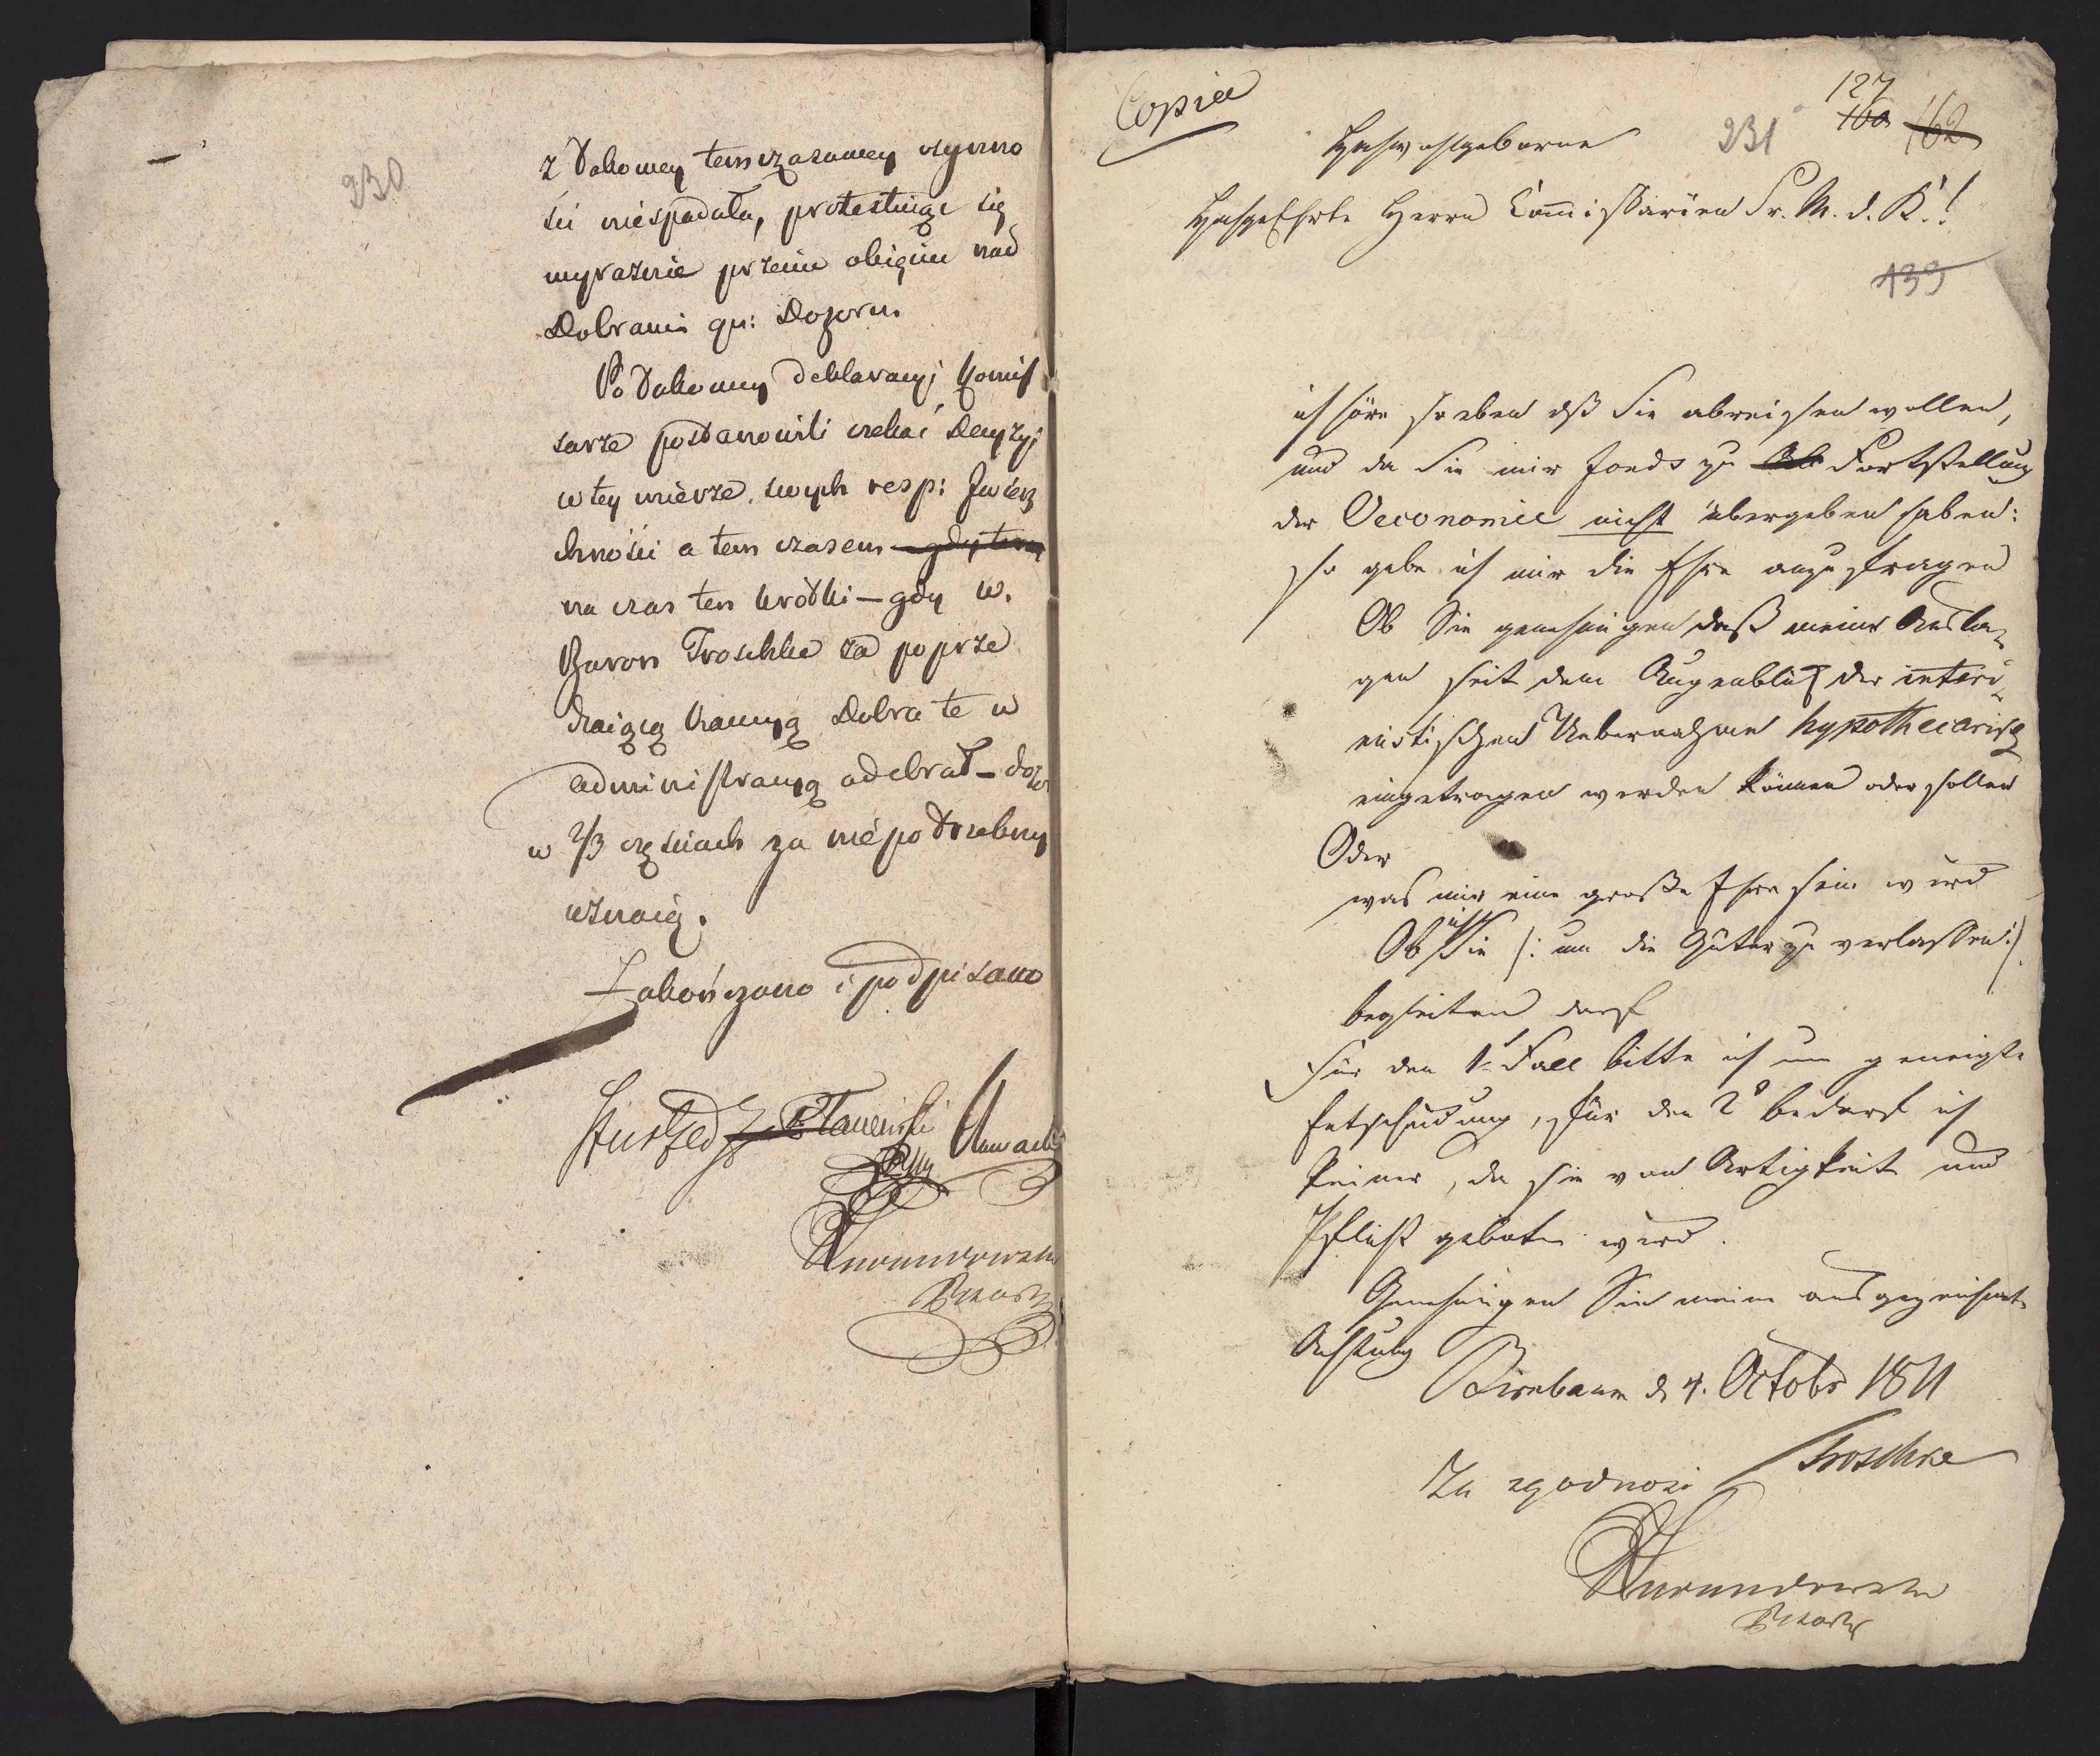 230
z takowey temczasowey czynno
ści niespadała, protestuiąc się
wyraźnie przeciw obięciu nad
Dobrami qu: Dozoru.
Po takowey deklaracyi Komis
sarze postanowili czekać Decyzyi
w tey mierze swych resp: Zwierz
chności a tem czasem ~~gdy tem~~
na czas ten krótki – gdy W.
Baron Troschke za poprze
dzaiącą kaucyą Dobra te w
administracyą odebrał – dozor
w 2/3 częściach za niepotrzebny
uznaią.
Zakończono i podpisano
Copia
127
~~160~~ ~~162~~
231
Hochwohlgeborne
Hochgeehrte Herrn Commissarien Sr. M. d. K.!
~~139~~
ich höre so eben dß Sie abreisen wollen,
und da Sie mir Fonds zu Fortstellung
der Oeconomie nicht übergeben haben:
so gebe ich mir die Ehre anzufragen
Ob Sie genehmigen daß meine Ausla-
gen seit dem Augenblick der interi-
mistischen Uebernahme hypothecarisch
eingetragen werden können oder sollen
Oder
was mir eine große Ehre sein wird
Ob ich Sie /: um die Güter zu verlassen :/
begleiten darf
Für den 1. Fall bitte ich um geneigte
Entscheidung, für den 2. bedarf ich
keiner, da sie von Artigkeit und
Pflicht geboten wird.
Genehmigen Sie meine ausgezeichnete
Achtung
Birnbaum d 4. Octobr 1811
Troschke
Za zgodność